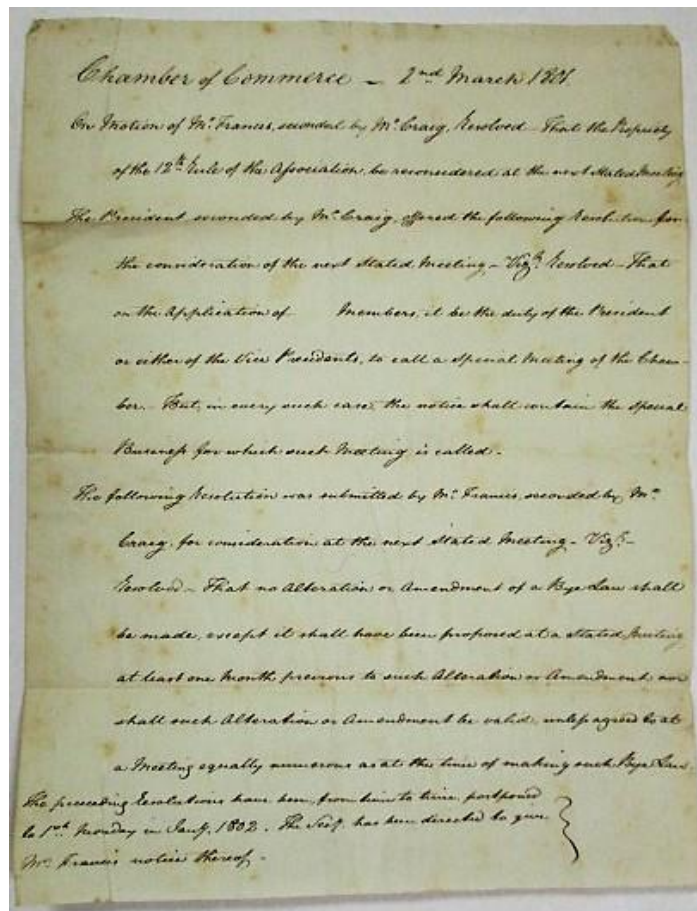 Chamber of Commerce – 2nd March 1801.
On Motion of Mr. Francis, seconded by Mr. Craig, Resolved – That the Propriety
of the 12th Rule of the Association, be reconsidered at the next Stated Meeting
The President seconded by Mr. Craig, offered the following Resolution for
the consideration of the next Stated Meeting – Vizt. Resolved – That
on the Application of Members, it be the duty of the President
or either of the Vice Presidents, to call a Special Meeting of the Cham-
ber. – But, in every such case, the notice shall contain the Special
Business for which such Meeting is called.
The following Resolution was submitted by Mr. Francis, seconded by Mr.
Craig, for consideration at the next Stated Meeting – Vizt. –
Resolved – That no Alteration or Amendment of a Bye Law shall
be made, except it shall have been proposed at a Stated Meeting
at least one Month previous to such Alteration or Amendment nor
shall such Alteration or Amendment be valid, unless agreed to at
a Meeting equally numerous as at the time of making such Bye Law.
The preceeding Resolutions have been, from time to time, postponed
to 1st Monday in Jany. 1802. The Secy. has been directed to give
Mr. Francis notice thereof –